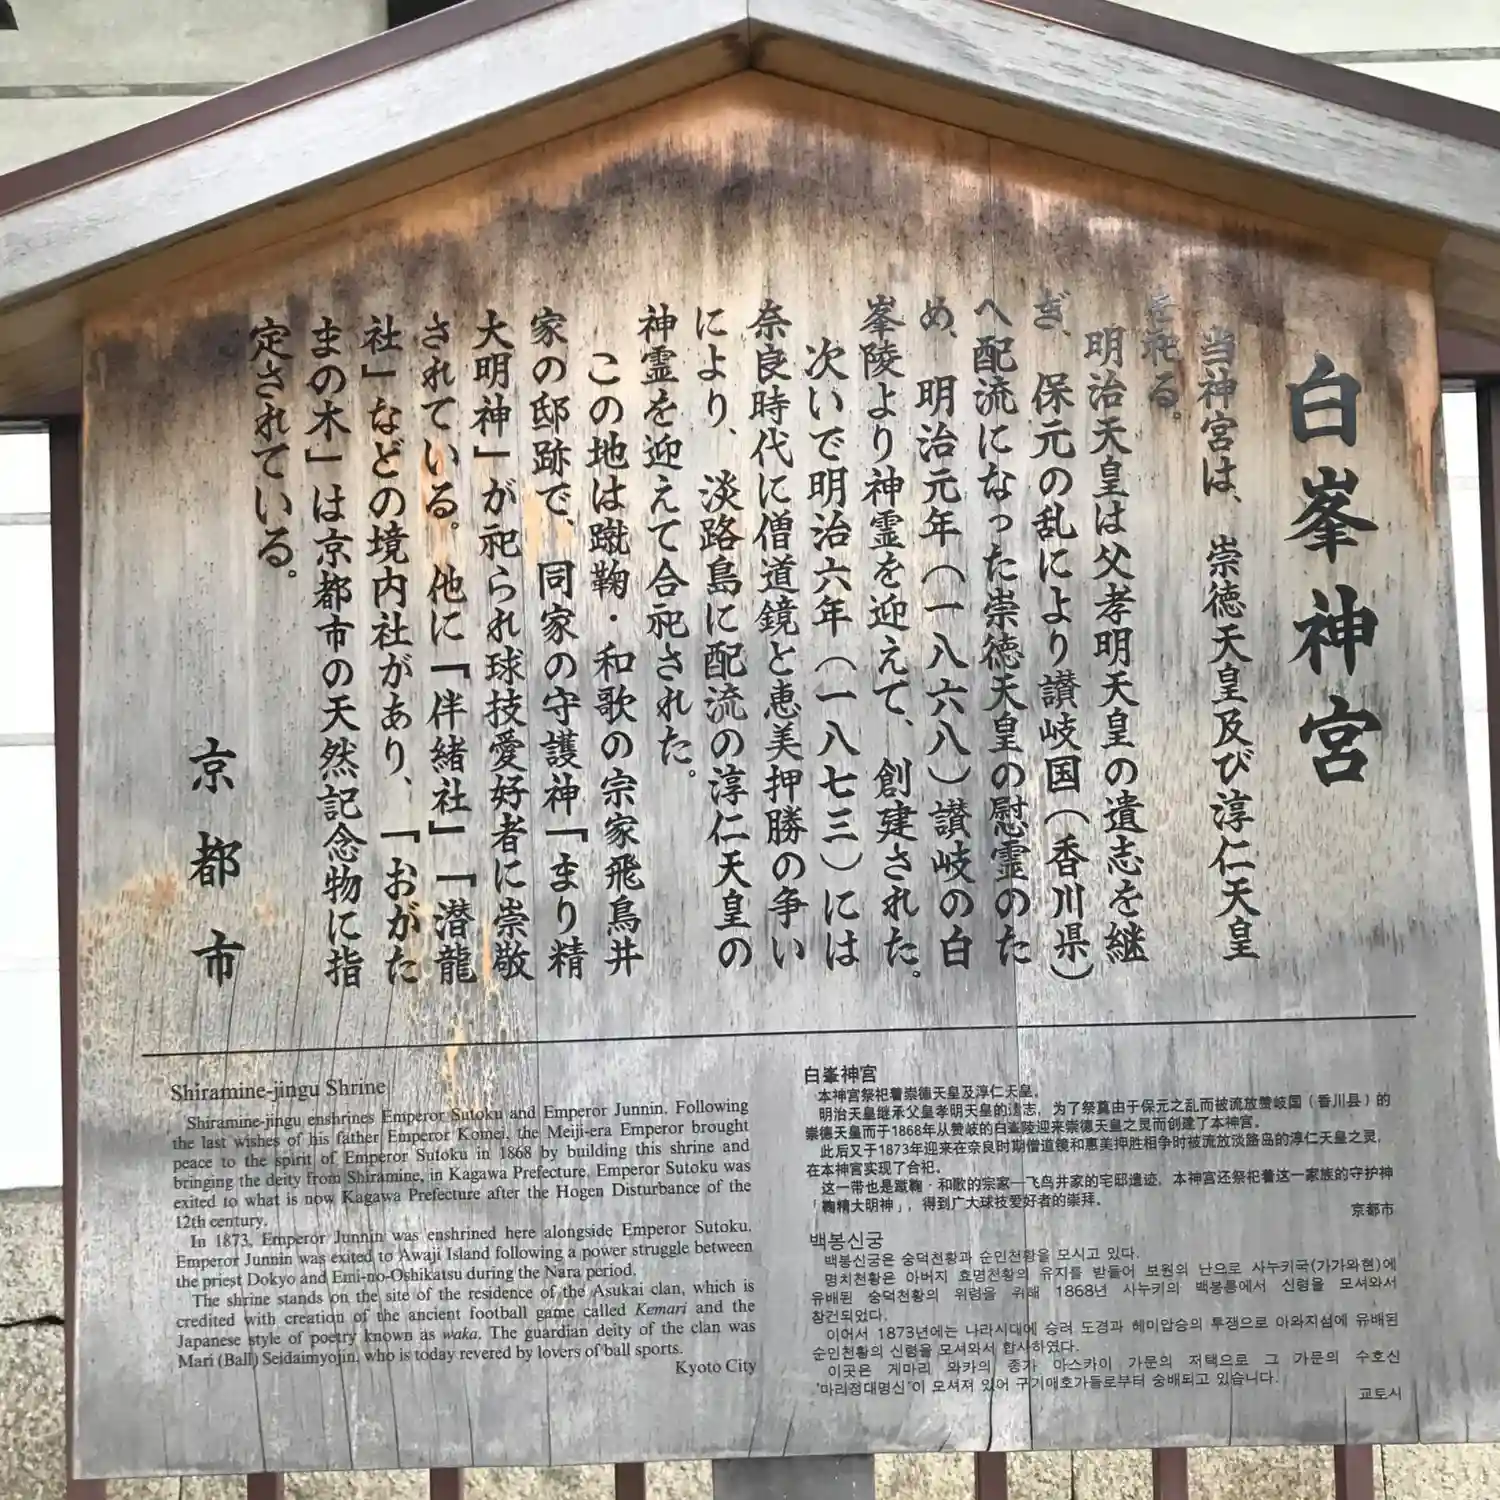 白峯神宮
当神宮は、崇徳天皇及び淳仁天皇
を祀る。
明治天皇は父孝明天皇の遺志を継
ぎ、保元の乱により讃岐国(香川県)
へ配流になった崇徳天皇の慰霊のた
め、明治元年(一八六八)讃岐の白
峯陵より神霊を迎えて、創建された。
次いで明治六年(一八七三)には
奈良時代に僧道鏡と恵美押勝の争い
により、淡路島に配流の淳仁天皇の
神霊を迎えて合祀された。
この地は蹴鞠・和歌の宗家飛鳥井
家の邸跡で、同家の守護神「まり精
大明神」が祀られ球技愛好者に崇敬
されている。他に「伴緒社」「潜龍
社」などの境内社があり、「おがた
まの木」は京都市の天然記念物に指
定されている。
京都市
Shiramine-jingu Shrine
Shiramine-jingu enshrines Emperor Sutoku and Emperor Junnin. Following
the last wishes of his father Emperor Komei, the Meiji-era Emperor brought
peace to the spirit of Emperor Sutoku in 1868 by building this shrine and
bringing the deity from Shiramine, in Kagawa Prefecture. Emperor Sutoku was
exited to what is now Kagawa Prefecture after the Hogen Disturbance of the
12th century.
In 1873, Emperor Junnin was enshrined here alongside Emperor Sutoku.
Emperor Junnin was exited to Awaji Island following a power struggle between
the priest Dokyo and Emi-no-Oshikatsu during the Nara period.
The shrine stands on the site of the residence of the Asukai clan, which is
credited with creation of the ancient football game called Kemari and the
Japanese style of poetry known as waka. The guardian deity of the clan was
Mari (Ball) Seidaimyojin, who is today revered by lovers of ball sports.
Kyoto City
白峯神宮
本神宮祭祀着崇德天皇及淳仁天皇。
明治天皇继承父皇孝明天皇的遗志，为了祭奠由于保元之乱而被流放赞岐国（香川县）的
崇德天皇而于1868年从赞岐的白峯陵迎来崇德天皇之灵而创建了本神宫。
此后又于1873年迎来在奈良时期僧道镜和惠美押胜相争时被流放淡路岛的淳仁天皇之灵，
在本神宫实现了合祀。
这一带也是蹴鞠・和歌的宗家—飞鸟井家的宅邸遗迹，本神宮还祭祀着这一家族的守护神
「鞠精大明神」，得到广大球技爱好者的崇拜。
京都市
백봉신궁
백봉신궁은 숭덕천황과 순인천황을 모시고 있다.
명치천황은 아버지 효명천황의 유지를 받들어 보원의 난으로 사누키국(가가와현)에
유배된 숭덕천황의 위령을 위해 1868년 사누키의 백봉릉에서 신령을 모셔와서
창건되었다.
이어서 1873년에는 나라시대에 승려 도경과 헤미압승의 투쟁으로 아와지섬에 유배된
순인천황의 신령을 모셔와서 합사하였다.
이곳은 게마리 와카의 종가 아스카이 가문의 저택으로 그 가문의 수호신
"마리정대명신"이 모셔져 있어 구기애호가들로부터 숭배되고 있습니다.
교토시